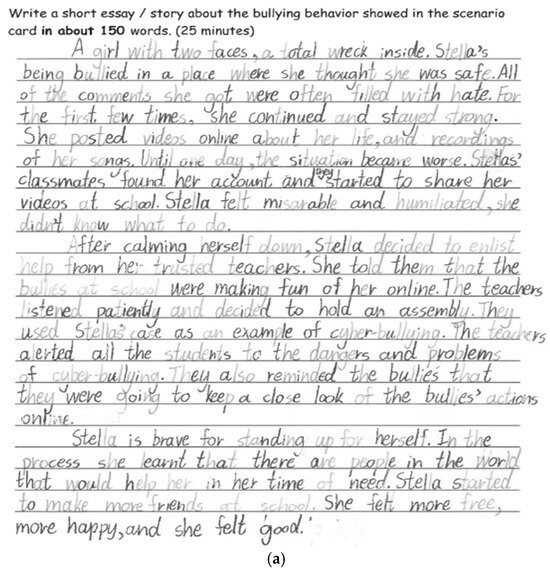 Write a short essay / story about the bullying behavior showed in the scenario
card in about 150 words. (25 minutes)
A girl with two faces, a total wreck inside. Stella's
being bullied in a place where she thought she was safe. All
of the comments she got were often filled with hate. For
the first few times, she continued and stayed strong.
She posted videos online about her life, and recordings
of her songs. Until one day, the situation became worse. Stellas'
classmates found her account and they started to share her
videos at school. Stella felt misarable and humiliated, she
didn't know what to do.
After calming herself down, Stella decided to enlist
help from her trusted teachers. She told them that the
bullies at school were making fun of her online. The teachers
listened patiently and decided to hold an assembly. They
used Stellas' case as an example of cyber-bullying. The teachers
alerted all the students to the dangers and problems
of cyber-bullying. They also reminded the bullies that
they were going to keep a close look of the bullies' actions
online.
Stella is brave for standing up for herself. In the
process she learnt that there are people in the world
that would help her in her time of need. Stella started
to make more friends at school. She felt more free,
more happy, and she felt 'good.'
(a)